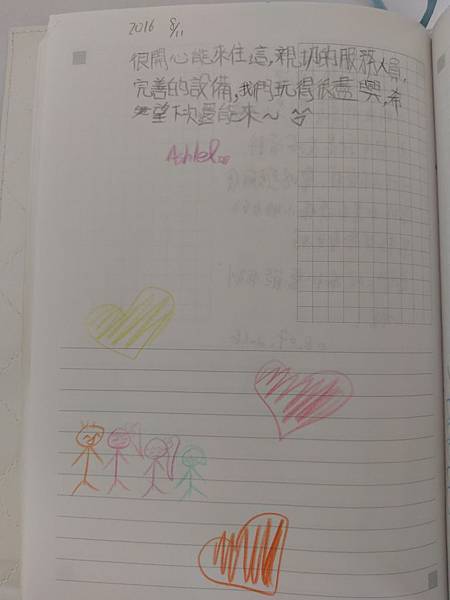 2016 8/11
很開心能來住這,親切的服務人員,
完善的設備,我們玩得很盡興,希
望下次還能來~